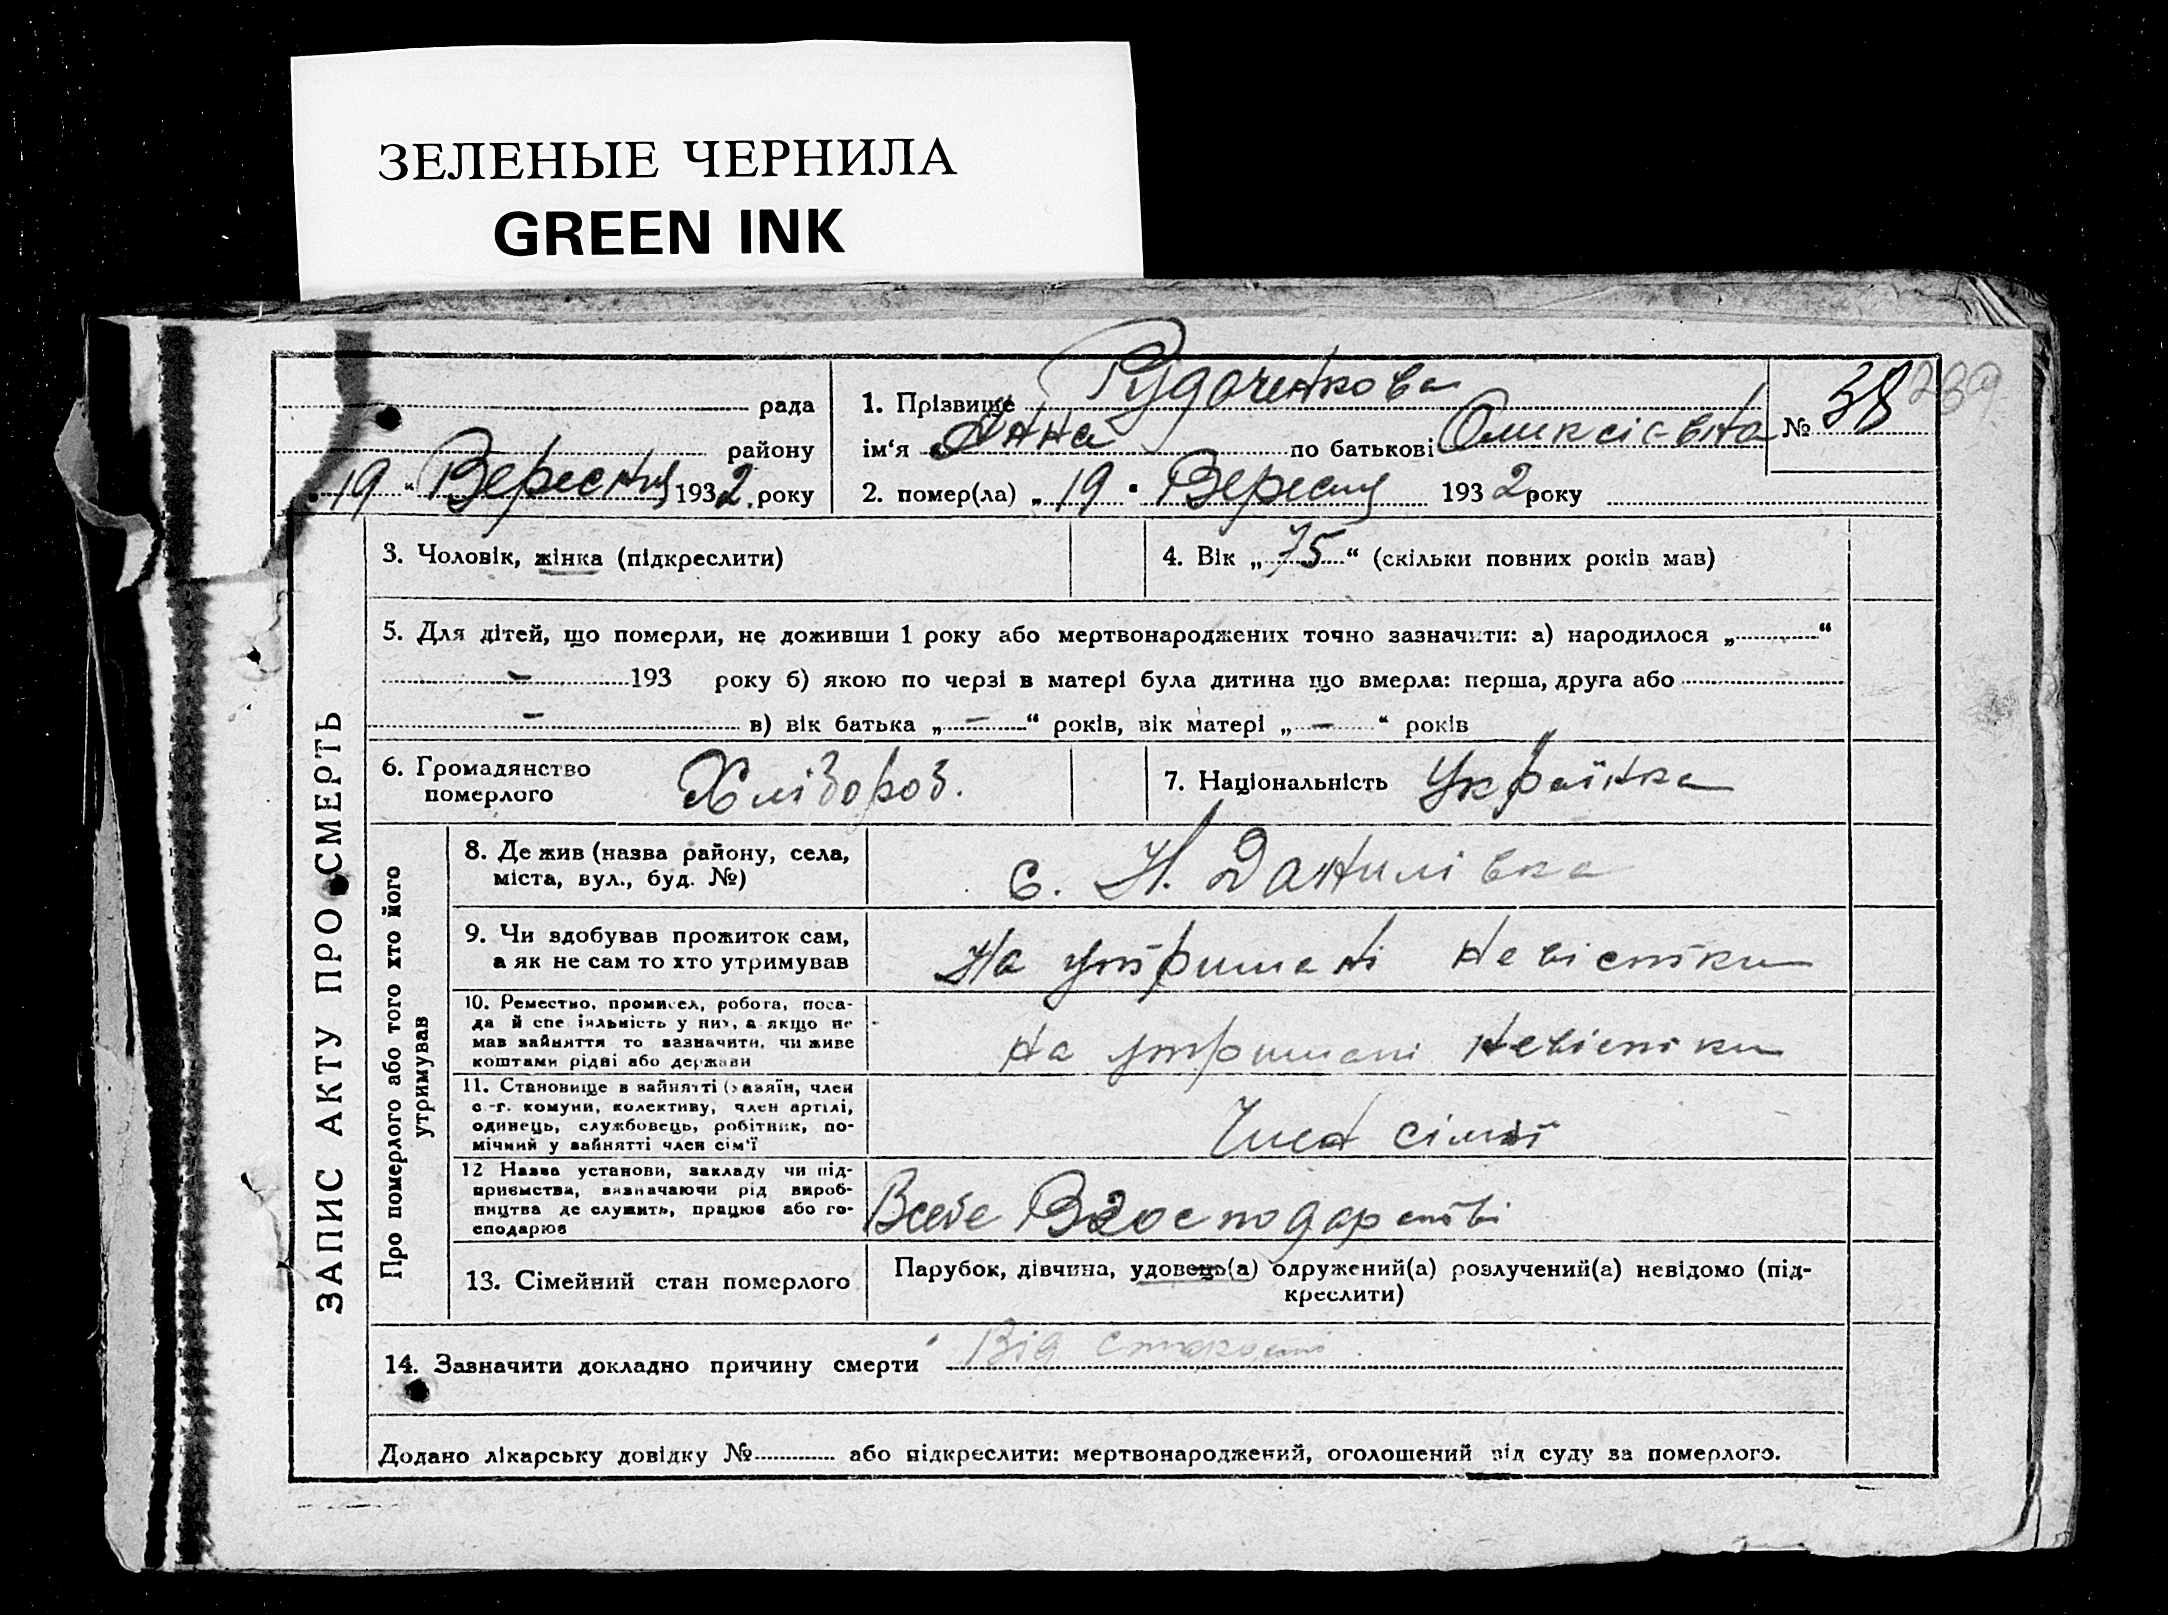 ЗЕЛЕНЫЕ ЧЕРНИЛА
GREEN INK
рада
району
„19“ Вересня 1932 року
1. Прізвище Рудаченкова
ім‘я Анна по батькові Оликсієвна
2. помер(ла) „19“ Вересня 1932 року
№ 38
239
ЗАПИС АКТУ ПРО СМЕРТЬ
3. Чоловік, жінка (підкреслити)
4. Вік „75“ (скільки повних років мав)
5. Для дітей, що померли, не доживши 1 року або мертвонароджених точно зазначити: а) народилося „ “
- 193 року б) якою по черзі в матері була дитина що вмерла: перша, друга або
- в) вік батька „-“ років, вік матері „-“ років
6. Громадянство
померлого
Хлібороб.
7. Національність Українка
Про померлого або того хто його
утримував
8. Де жив (назва району, села,
міста, вул., буд. №)
с. Н. Данилівка
9. Чи здобував прожиток сам,
а як не сам то хто утримував
На утримані невістки
10. Ремество, промисел, робота, поса-
да й спеціяльність у них, а якщо не
мав зайняття то зазначити, чи живе
коштами рідні або держави
на утримані невістки
11. Становище в зайнятті (хазяїн, член
с.-г. комуни, колективу, член артілі,
одинець, службовець, робітник, по-
мічний у зайнятті член сім'ї
Член сімї
12 Назва установи, закладу чи під-
приємства, визначаючи рід вироб-
ництва де служить, працює або го-
сподарює
Всебе В господарстві
13. Сімейний стан померлого
Парубок, дівчина, удовець(а) одружений(а) розлучений(а) невідомо (під-
креслити)
14. Зазначити докладно причину смерти Від старости
Додано лікарську довідку № або підкреслити: мертвонароджений, оголошений від суду за померлого.